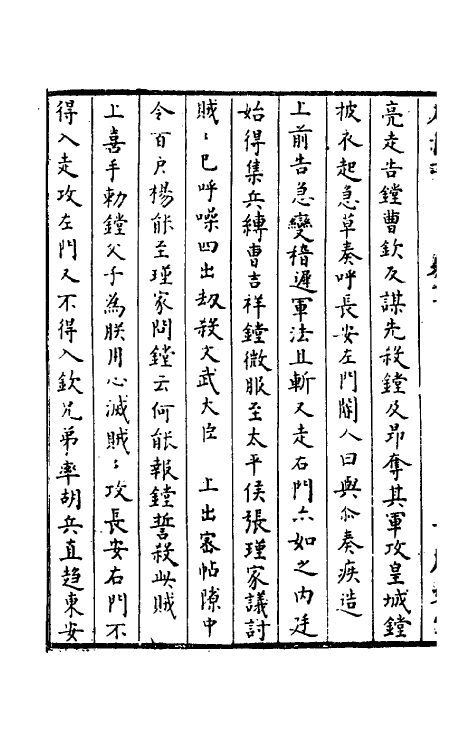 亮走告鏜曹欽反謀先殺鏜及昂奪其軍攻皇城鏜
披衣起急草奏呼長安左門閽人曰與尒奏疾造
上前告急變稽遲軍法且斬又走右門亦如之内廷
始得集兵縛曹吉祥鏜微服至太平侯張瑾家議討
賊〻已呼噪四出劫殺文武大臣　上出密帖隙中
令百户楊能至瑾家問鏜云何能報鏜誓殺此賊
上喜手勅鏜父子為朕用心滅賊〻攻長安右門不
得入走攻左門又不得入欽兄弟率胡兵直趨東安